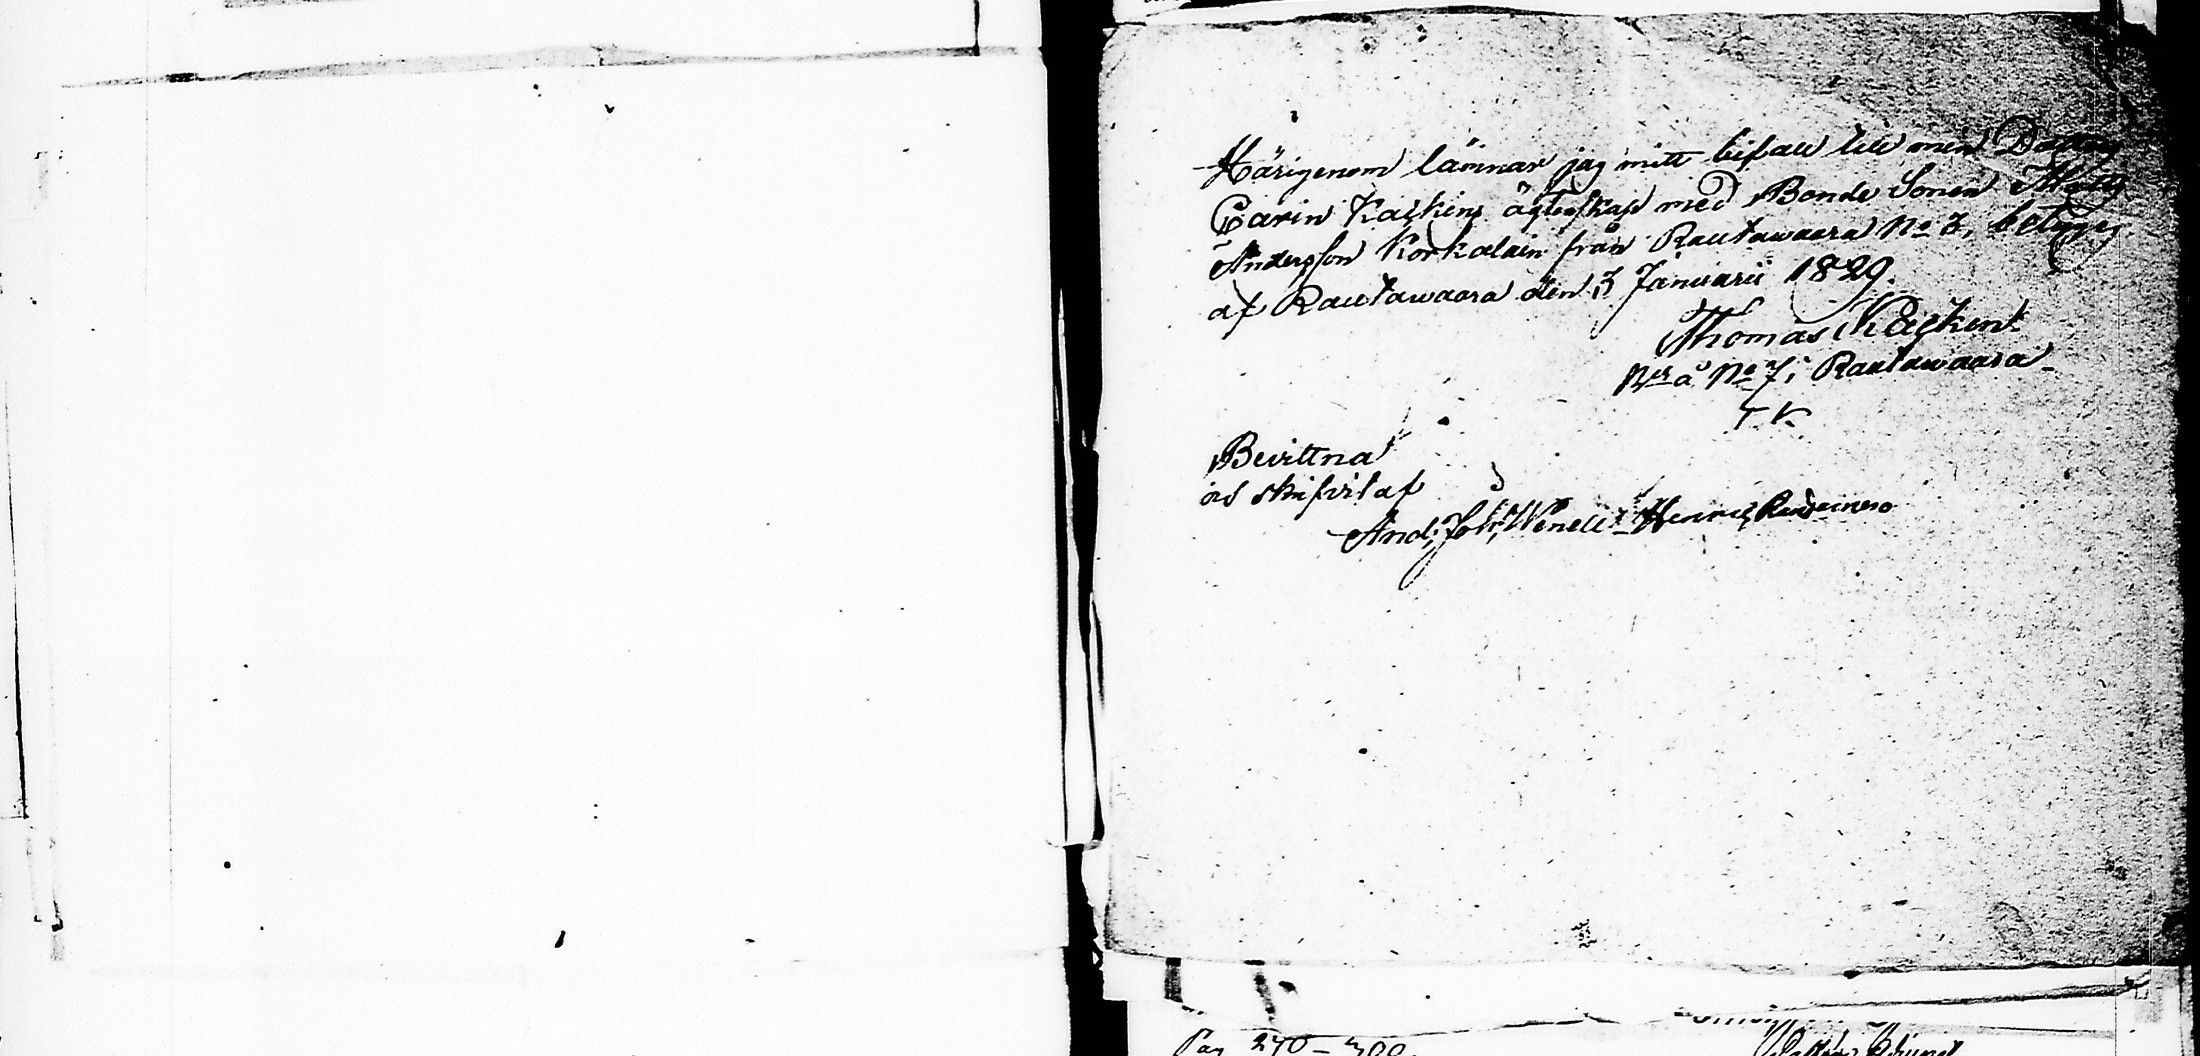 Härigenom lämnar jag mitt bifall till min Dotter
Carin Kaskens ägtenskap med Bonde Sonen
Andersson Korkalain från Rautawaara No 3, betyges
af Rautawaara den 3 Januarii 1829.
Thomas Kasken
å No 7, Rautawaara
T. K.
Bevittna
af
And: Joh: Wenell Henric
Pag 270 - 300.